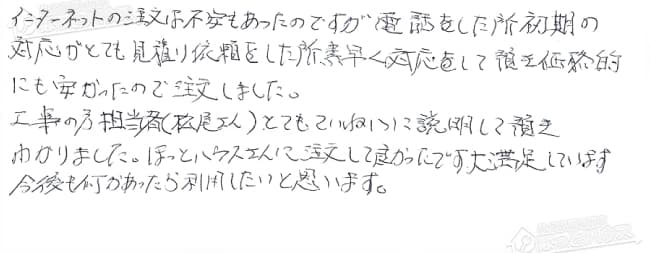 インターネットの注文は不安もあったのですが電話をした所初期の
対応がとても見積り依頼をした所素早く対応をして頂き価格的
にも安かったので注文しました。
工事の方担当者(松尾さん)とてもていねいに説明して頂き
わかりました。ほっとハウスさんに注文して良かったです大満足しています
今後も何かあったら利用したいと思います。